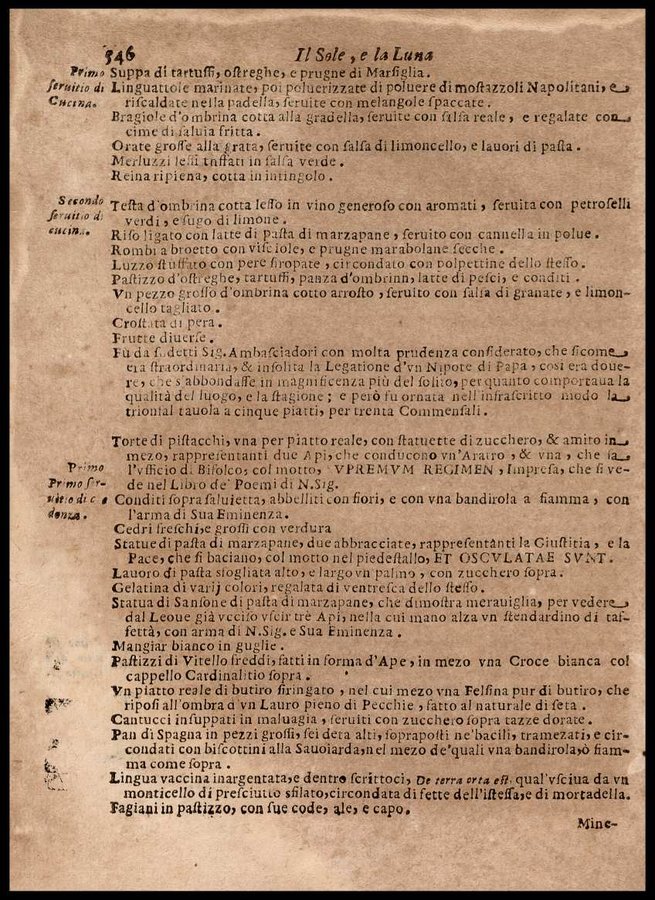 346 Il Sole, e la Luna
Primo seruitio di Cucina.
Suppa di tartuffi, ostreghe, e prugne di Marsiglia.
Linguattole marinate, poi poluerizzate di poluere di mostazzoli Napolitani, e
riscaldate nella padella, seruite con melangole spaccate.
Bragiole d'ombrina cotta alla gradella, seruite con salsa reale, e regalate con
cime di saluia fritta.
Orate grosse alla grata, seruite con salsa di limoncello, e lauori di pasta.
Merluzzi lessi tuffati in salsa verde.
Reina ripiena, cotta in intingolo.
Secondo seruitio di cucina.
Testa d'ombrina cotta lesso in vino generoso con aromati, seruita con petroselli
verdi, e sugo di limone.
Riso ligato con latte di pasta di marzapane, seruito con cannella in polue.
Rombi a broetto con visciole, e prugne marabolane secche.
Luzzo stuffato con pere siropate, circondato con polpettine dello stesso.
Pastizzo d'ostreghe, tartuffi, panza d'ombrinn, latte di pesci, e conditi.
Vn pezzo grosso d'ombrina cotto arrosto, seruito con salsa di granate, e limon-
cello tagliato.
Crostata di pera.
Frutte diuerse.
Fù da sudetti Sig. Ambasciadori con molta prudenza considerato, che sicome
era straordinaria, & insolita la Legatione d'vn Nipote di Papa, così era doue-
re, che s'abbondasse in magnificenza più del solito, per quanto comportaua la
qualità del luogo, e la stagione; e però fu ornata nell'infrascritto modo la
trionfal tauola a cinque piatti, per trenta Commensali.
Primo
Primo ser-
uitio di c e
denza.
Torte di pistacchi, vna per piatto reale, con statuette di zucchero, & amito in
mezo, rappresentanti due Api, che conducono vn'Aratro, & vna, che fa
l'vfficio di Bifolco; col motto, VPREMVM REGIMEN, Impresa, che si ve-
de nel Libro de' Poemi di N.Sig.
Conditi sopra saluietta, abbelliti con fiori, e con vna bandirola a fiamma, con
l'arma di Sua Eminenza.
Cedri freschi, e grossi con verdura
Statue di pasta di marzapane, due abbracciate, rappresentanti la Giustitia, e la
Pace, che si baciano, col motto nel piedestallo, ET OSCVLATAE SVNT.
Lauoro di pasta sfogliata alto, e largo vn palmo, con zucchero sopra.
Gelatina di varij colori, regalata di ventresca dello stesso.
Statua di Sansone di pasta di marzapane, che dimostra merauiglia, per vedere
dal Leoue già vcciso vscir trè Api, nella cui mano alza vn stendardino di taf-
fettà, con arma di N.Sig. e Sua Eminenza.
Mangiar bianco in guglie.
Pastizzi di Vitello freddi, fatti in forma d'Ape, in mezo vna Croce bianca col
cappello Cardinalitio sopra.
Vn piatto reale di butiro siringato, nel cui mezo vna Felsina pur di butiro, che
riposi all'ombra d'vn Lauro pieno di Pecchie, fatto al naturale di seta.
Cantucci insuppati in maluagia, seruiti con zucchero sopra tazze dorate.
Pan di Spagna in pezzi grossi, sei deta alti, soprapósti ne'bacili, tramezati, e cir-
condati con biscottini alla Sauoiarda, nel mezo de'quali vna bandirola, ò fiam-
ma come sopra.
Lingua vaccina inargentata, e dentro scrittoci, De terra orta est. qual'vsciua da vn
monticello di presciutto sfilato, circondata di fette dell'istessa, e di mortadella.
Fagiani in pastizzo, con sue code, ale, e capo.
Mine-